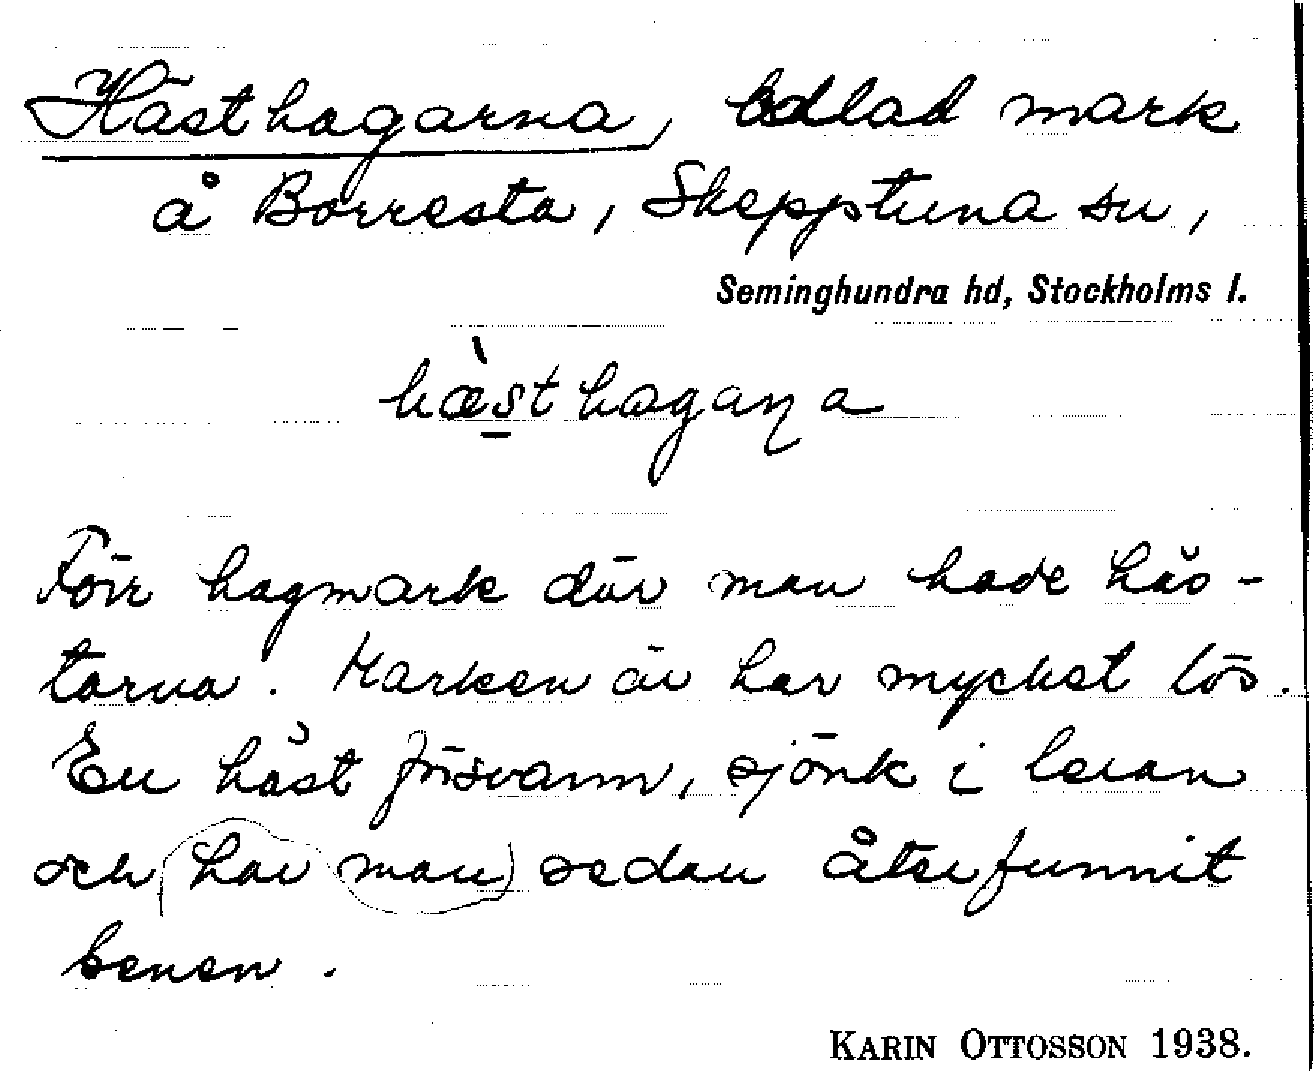 Hästhagarna, odlad mark
å Borresta, Skepptuna sn,
Seminghundra hd, Stockholms l.
hæ̀st hagaɳa
Förr hagmark där man hade häs-
tarna. Marken är här mycket lös.
En häst försvann, sjönk i leran
och har man sedan återfunnit
benen.
KARIN OTTOSSON 1938.